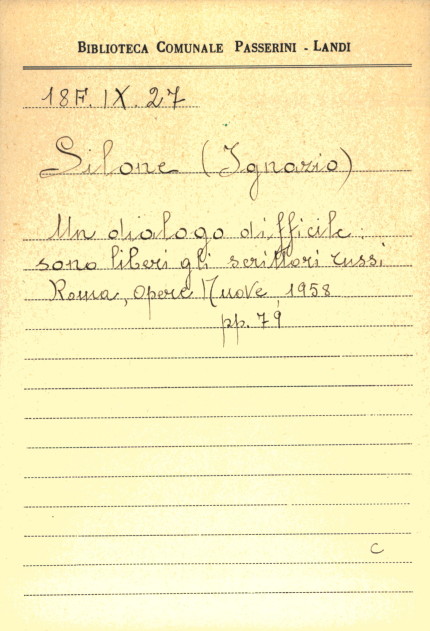 BIBLIOTECA COMUNALE PASSERINI - LANDI
18F. IX. 27
Silone (Ignazio)
Un dialogo difficile:
sono liberi gli scrittori russi
Roma, Opere Nuove, 1958
pp. 79
C